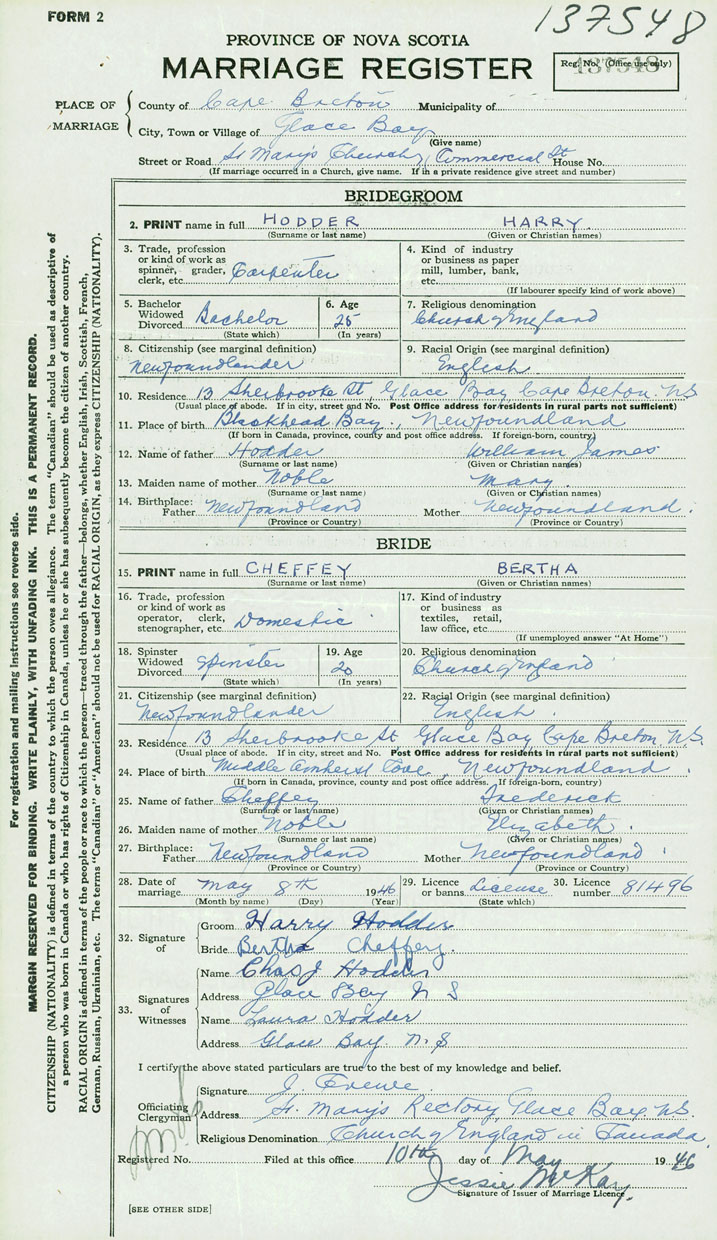 FORM 2
137548
PROVINCE OF NOVA SCOTIA
MARRIAGE REGISTER
Reg. No. (Office use only)
137548
PLACE OF MARRIAGE
County of Cape Breton Municipality of
City, Town or Village of Glace Bay
(Give name)
Street or Road St Mary's Church, Commercial St House No.
(If marriage occurred in a Church, give name. If in a private residence give street and number)
BRIDEGROOM
2. PRINT name in full HODDER HARRY
(Surname or last name) (Given or Christian names)
3. Trade, profession or kind of work as spinner, grader, clerk, etc. Carpenter
4. Kind of industry or business as paper mill, lumber, bank, etc.
(If labourer specify kind of work above)
5. Bachelor Widowed Divorced Bachelor
(State which)
6. Age 25
(In years)
7. Religious denomination
Church of England
8. Citizenship (see marginal definition)
Newfoundlander
9. Racial Origin (see marginal definition)
English
10. Residence 13 Sherbrooke St, Glace Bay Cape Breton NS
(Usual place of abode. If in city, street and No. Post Office address for residents in rural parts not sufficient)
11. Place of birth Blackhead Bay, Newfoundland
(If born in Canada, province, county and post office address. If foreign-born, country)
12. Name of father Hodder William James
(Surname or last name) (Given or Christian names)
13. Maiden name of mother Noble Mary
(Surname or last name) (Given or Christian names)
14. Birthplace: Father Newfoundland Mother Newfoundland.
(Province or Country) (Province or Country)
BRIDE
15. PRINT name in full CHEFFEY BERTHA
(Surname or last name) (Given or Christian names)
16. Trade, profession or kind of work as operator, clerk, stenographer, etc. Domestic
17. Kind of industry or business as textiles, retail, law office, etc.
(If unemployed answer "At Home")
18. Spinster Widowed Divorced Spinster
(State which)
19. Age 20
(In years)
20. Religious denomination
Church of England
21. Citizenship (see marginal definition)
Newfoundlander
22. Racial Origin (see marginal definition)
English
23. Residence 13 Sherbrooke St Glace Bay Cape Breton N.S.
(Usual place of abode. If in city, street and No. Post Office address for residents in rural parts not sufficient)
24. Place of birth Middle Amherst Cove, Newfoundland.
(If born in Canada, province, county and post office address. If foreign-born, country)
25. Name of father Cheffey Frederick
(Surname or last name) (Given or Christian names)
26. Maiden name of mother Noble Elizabeth.
(Surname or last name) (Given or Christian names)
27. Birthplace: Father Newfoundland Mother Newfoundland.
(Province or Country) (Province or Country)
28. Date of marriage May 8th 1946
(Month by name) (Day) (Year)
29. Licence or banns License
(State which)
30. Licence number 81496
32. Signature of
Groom Harry Hodder
Bride Bertha Cheffery.
33. Signatures of Witnesses
Name Chas J Hodder
Address Glace Bay N S
Name Laura Hodder
Address Glace Bay. N.S
I certify the above stated particulars are true to the best of my knowledge and belief.
Officiating Clergyman
Signature J. Crewe
Address St. Mary's Rectory, Glace Bay N.S.
Religious Denomination Church of England in Canada.
Registered No. Filed at this office 10th day of May 1946
Jessie McKay.
Signature of Issuer of Marriage Licence
[SEE OTHER SIDE]
For registration and mailing instructions see reverse side.
MARGIN RESERVED FOR BINDING. WRITE PLAINLY, WITH UNFADING INK. THIS IS A PERMANENT RECORD.
CITIZENSHIP (NATIONALITY) is defined in terms of the country to which the person owes allegiance. The term "Canadian" should be used as descriptive of
a person who was born in Canada or who has rights of Citizenship in Canada, unless he or she has subsequently become the citizen of another country.
RACIAL ORIGIN is defined in terms of the people or race to which the person—traced through the father—belongs, whether English, Irish, Scottish, French,
German, Russian, Ukrainian, etc. The terms "Canadian" or "American" should not be used for RACIAL ORIGIN, as they express CITIZENSHIP (NATIONALITY).